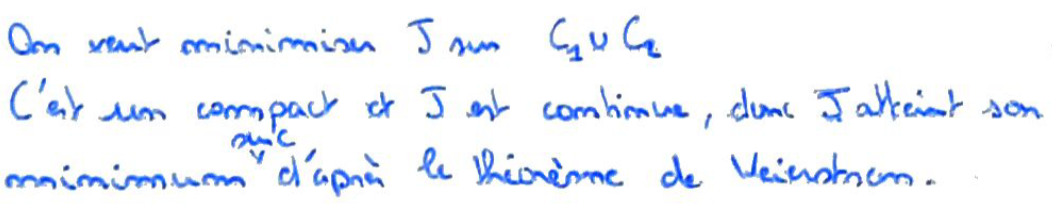 On veut minimiser J sur C₁ ∪ C₂
C'est un compact et J est continue, donc J atteint son
minimum sur C d'après le théorème de Weierstrass.